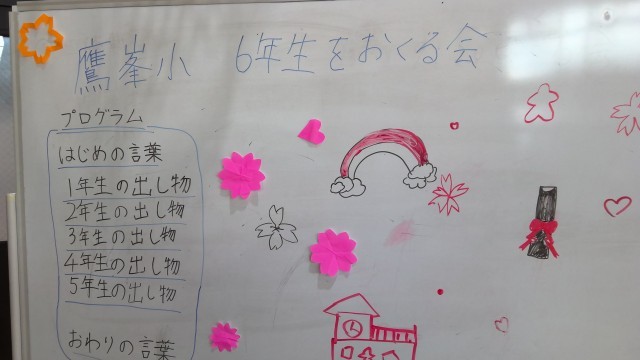 鷹峯小 6年生をおくる会
プログラム
はじめの言葉
1年生の出し物
2年生の出し物
3年生の出し物
4年生の出し物
5年生の出し物
おわりの言葉